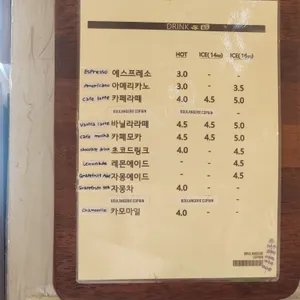 DRINK
HOT ICE(14oz) ICE(16oz)
Espresso 에스프레소 3.0 - -
Americano 아메리카노 3.0 - 3.5
Cafe latte 카페라떼 4.0 4.5 5.0
BOULANGERIE COPAIN BOULANGERIE COPAIN
Vanilla latte 바닐라라떼 4.5 4.5 5.0
Cafe mocha 카페모카 4.5 4.5 5.0
초코드링크 4.0 - 4.5
Lemonade 레몬에이드 - - 4.5
자몽에이드 - - 4.5
자몽차 4.0 - -
BOULANGERIE COPAIN BOULANGERIE COPAIN
Chamomile 카모마일 4.0 - -
BOULANGERIE
COPAIN